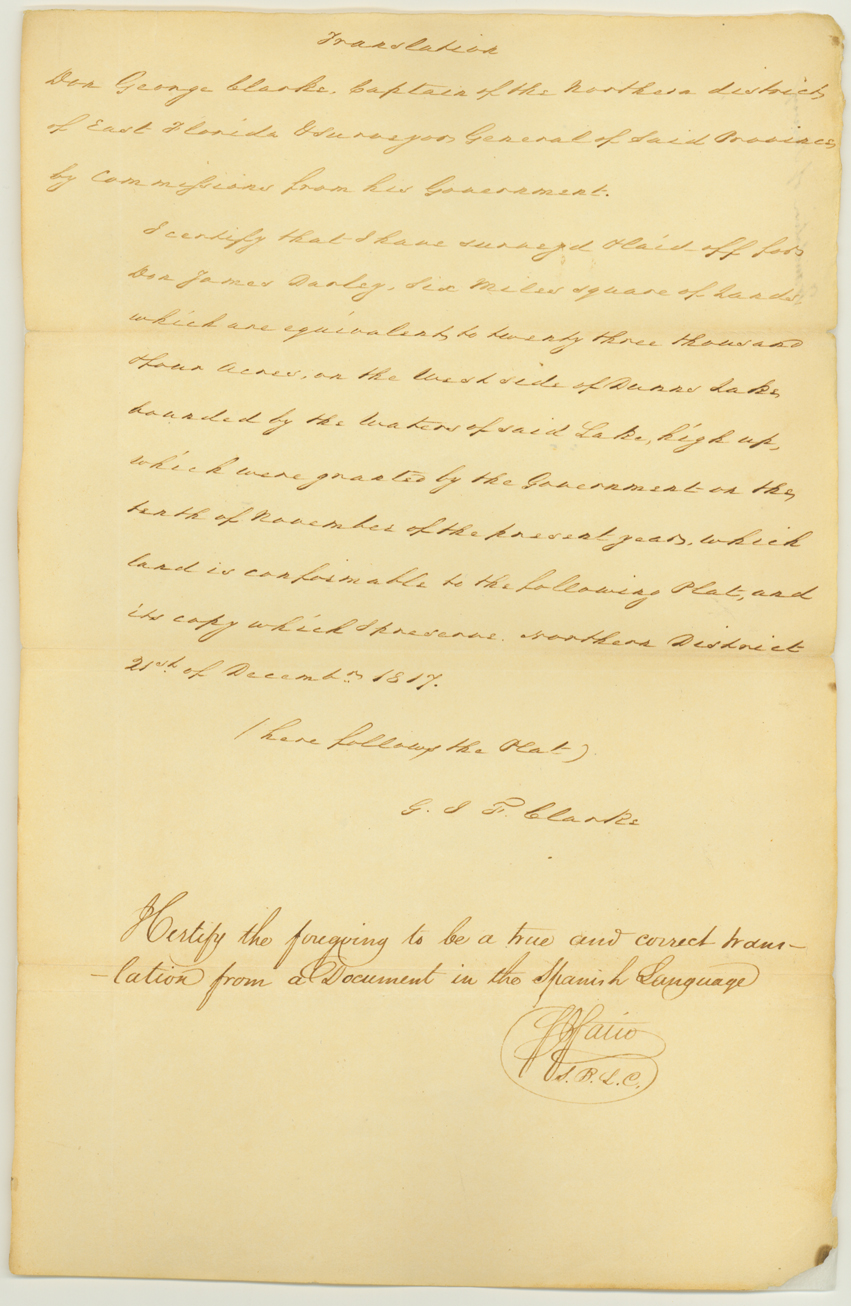 Translation
Don George Clarke, Captain of the Northern district
of East Florida & surveyor General of said Province,
by Commissions from his Government.
I certify that I have surveyed & laid off for
Don James Darley, Six Miles square of Lands,
which are equivalent to twenty three thousand
& four Acres, on the West side of Dunns Lake,
bounded by the Waters of said Lake, high up,
which were granted by the Government on the
tenth of November of the present year, which
land is conformable to the following Plat, and
its copy which I preserve. Northern District
21st of Decembr 1817.
(here follows the Plat)
G. I F. Clarke
I Certify the foregoing to be a true and correct trans-
-lation from a Document in the Spanish Language
S. B. L. C.